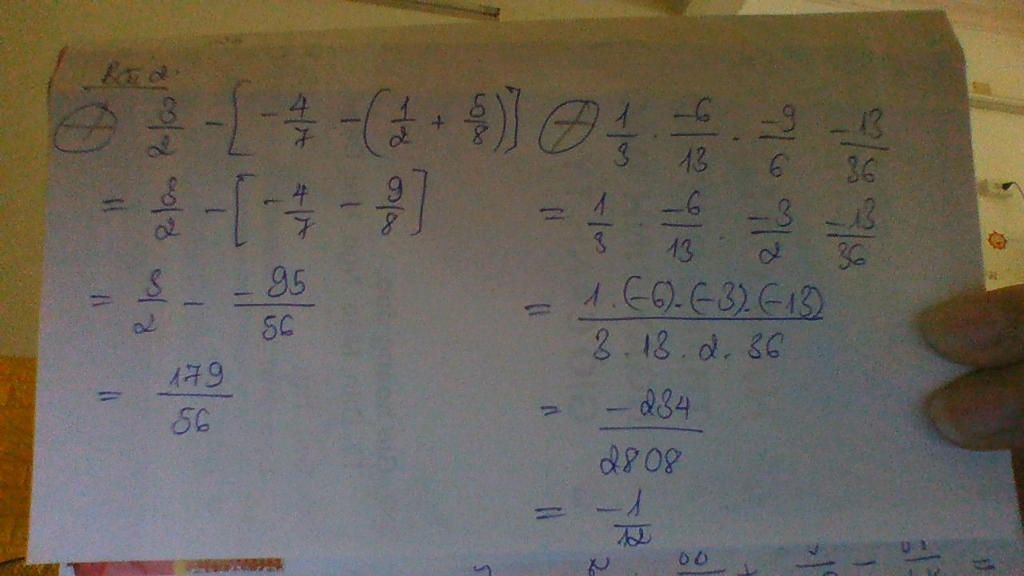 Bài 2.
+ 3/2 - [ -4/7 - ( 1/2 + 5/8 ) ]
= 3/2 - [ -4/7 - 9/8 ]
= 3/2 - -95/56
= 179/56
+ 1/3 . -6/13 . -9/6 -13/36
= 1/3 . -6/13 . -3/2 -13/36
= 1.(-6).(-3).(-13) / 3.13.2.36
= -234/2808
= -1/12